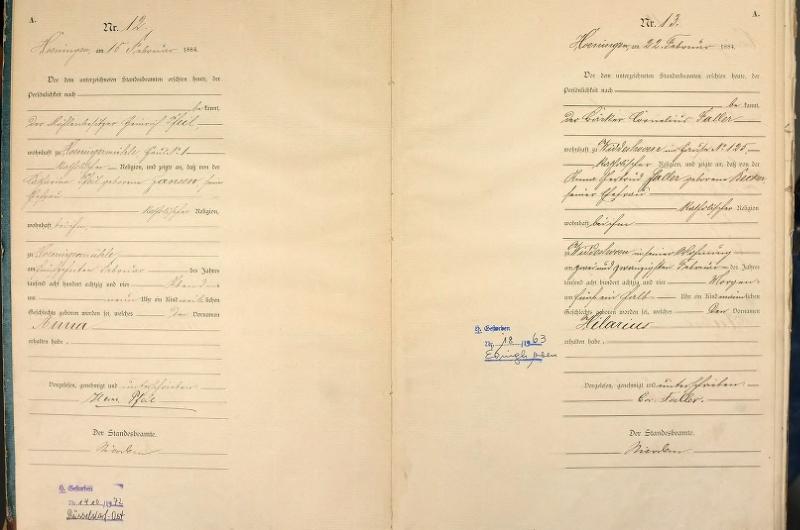 A.
Nr. 12.
Hoeningen, am 15 Februar 1884.
Vor dem unterzeichneten Standesbeamten erschien heute, der
Persönlichkeit nach
be kannt,
der Mühlenbesitzer Heinrich Pfeil
wohnhaft zu Hoeningermühle Haus № 1
katholischer Religion, und zeigte an, daß von der
Catharina Pfeil geborene Jansen, seine
Ehefrau
katholischer Religion,
wohnhaft bei ihm,
zu Hoeningermühle
am fünfzehnten Februar des Jahres
tausend acht hundert achtzig und vier Abends
um neun Uhr ein Kind weiblichen
Geschlechts geboren worden sei, welches den Vornamen
Anna
erhalten habe.
Vorgelesen, genehmigt und unterschrieben
Hein Pfeil
Der Standesbeamte.
Nierden
Gestorben
Nr. 1972
Düsseldorf-Ost
A.
Nr. 13.
Hoeningen, am 22. Februar 1884.
Vor dem unterzeichneten Standesbeamten erschien heute, der
Persönlichkeit nach
be kannt,
der Bäcker Cornelius Faller
wohnhaft zu Widdeshoven in Hause № 125,
katholischer Religion, und zeigte an, daß von der
Anna Gertrud Faller geborene Becker
seiner Ehefrau
katholischer Religion
wohnhaft bei ihm
Widdeshoven in seiner Wohnung
am zwei und zwanzigsten Februar des Jahres
tausend acht hundert achtzig und vier Morgens
um fünf ein halb Uhr ein Kind männlichen
Geschlechts geboren worden sei, welches den Vornamen
Hilarius
erhalten habe.
Vorgelesen, genehmigt und unterschrieben
Cor. Faller.
Der Standesbeamte.
Nierden
Gestorben
Nr. 18 1963